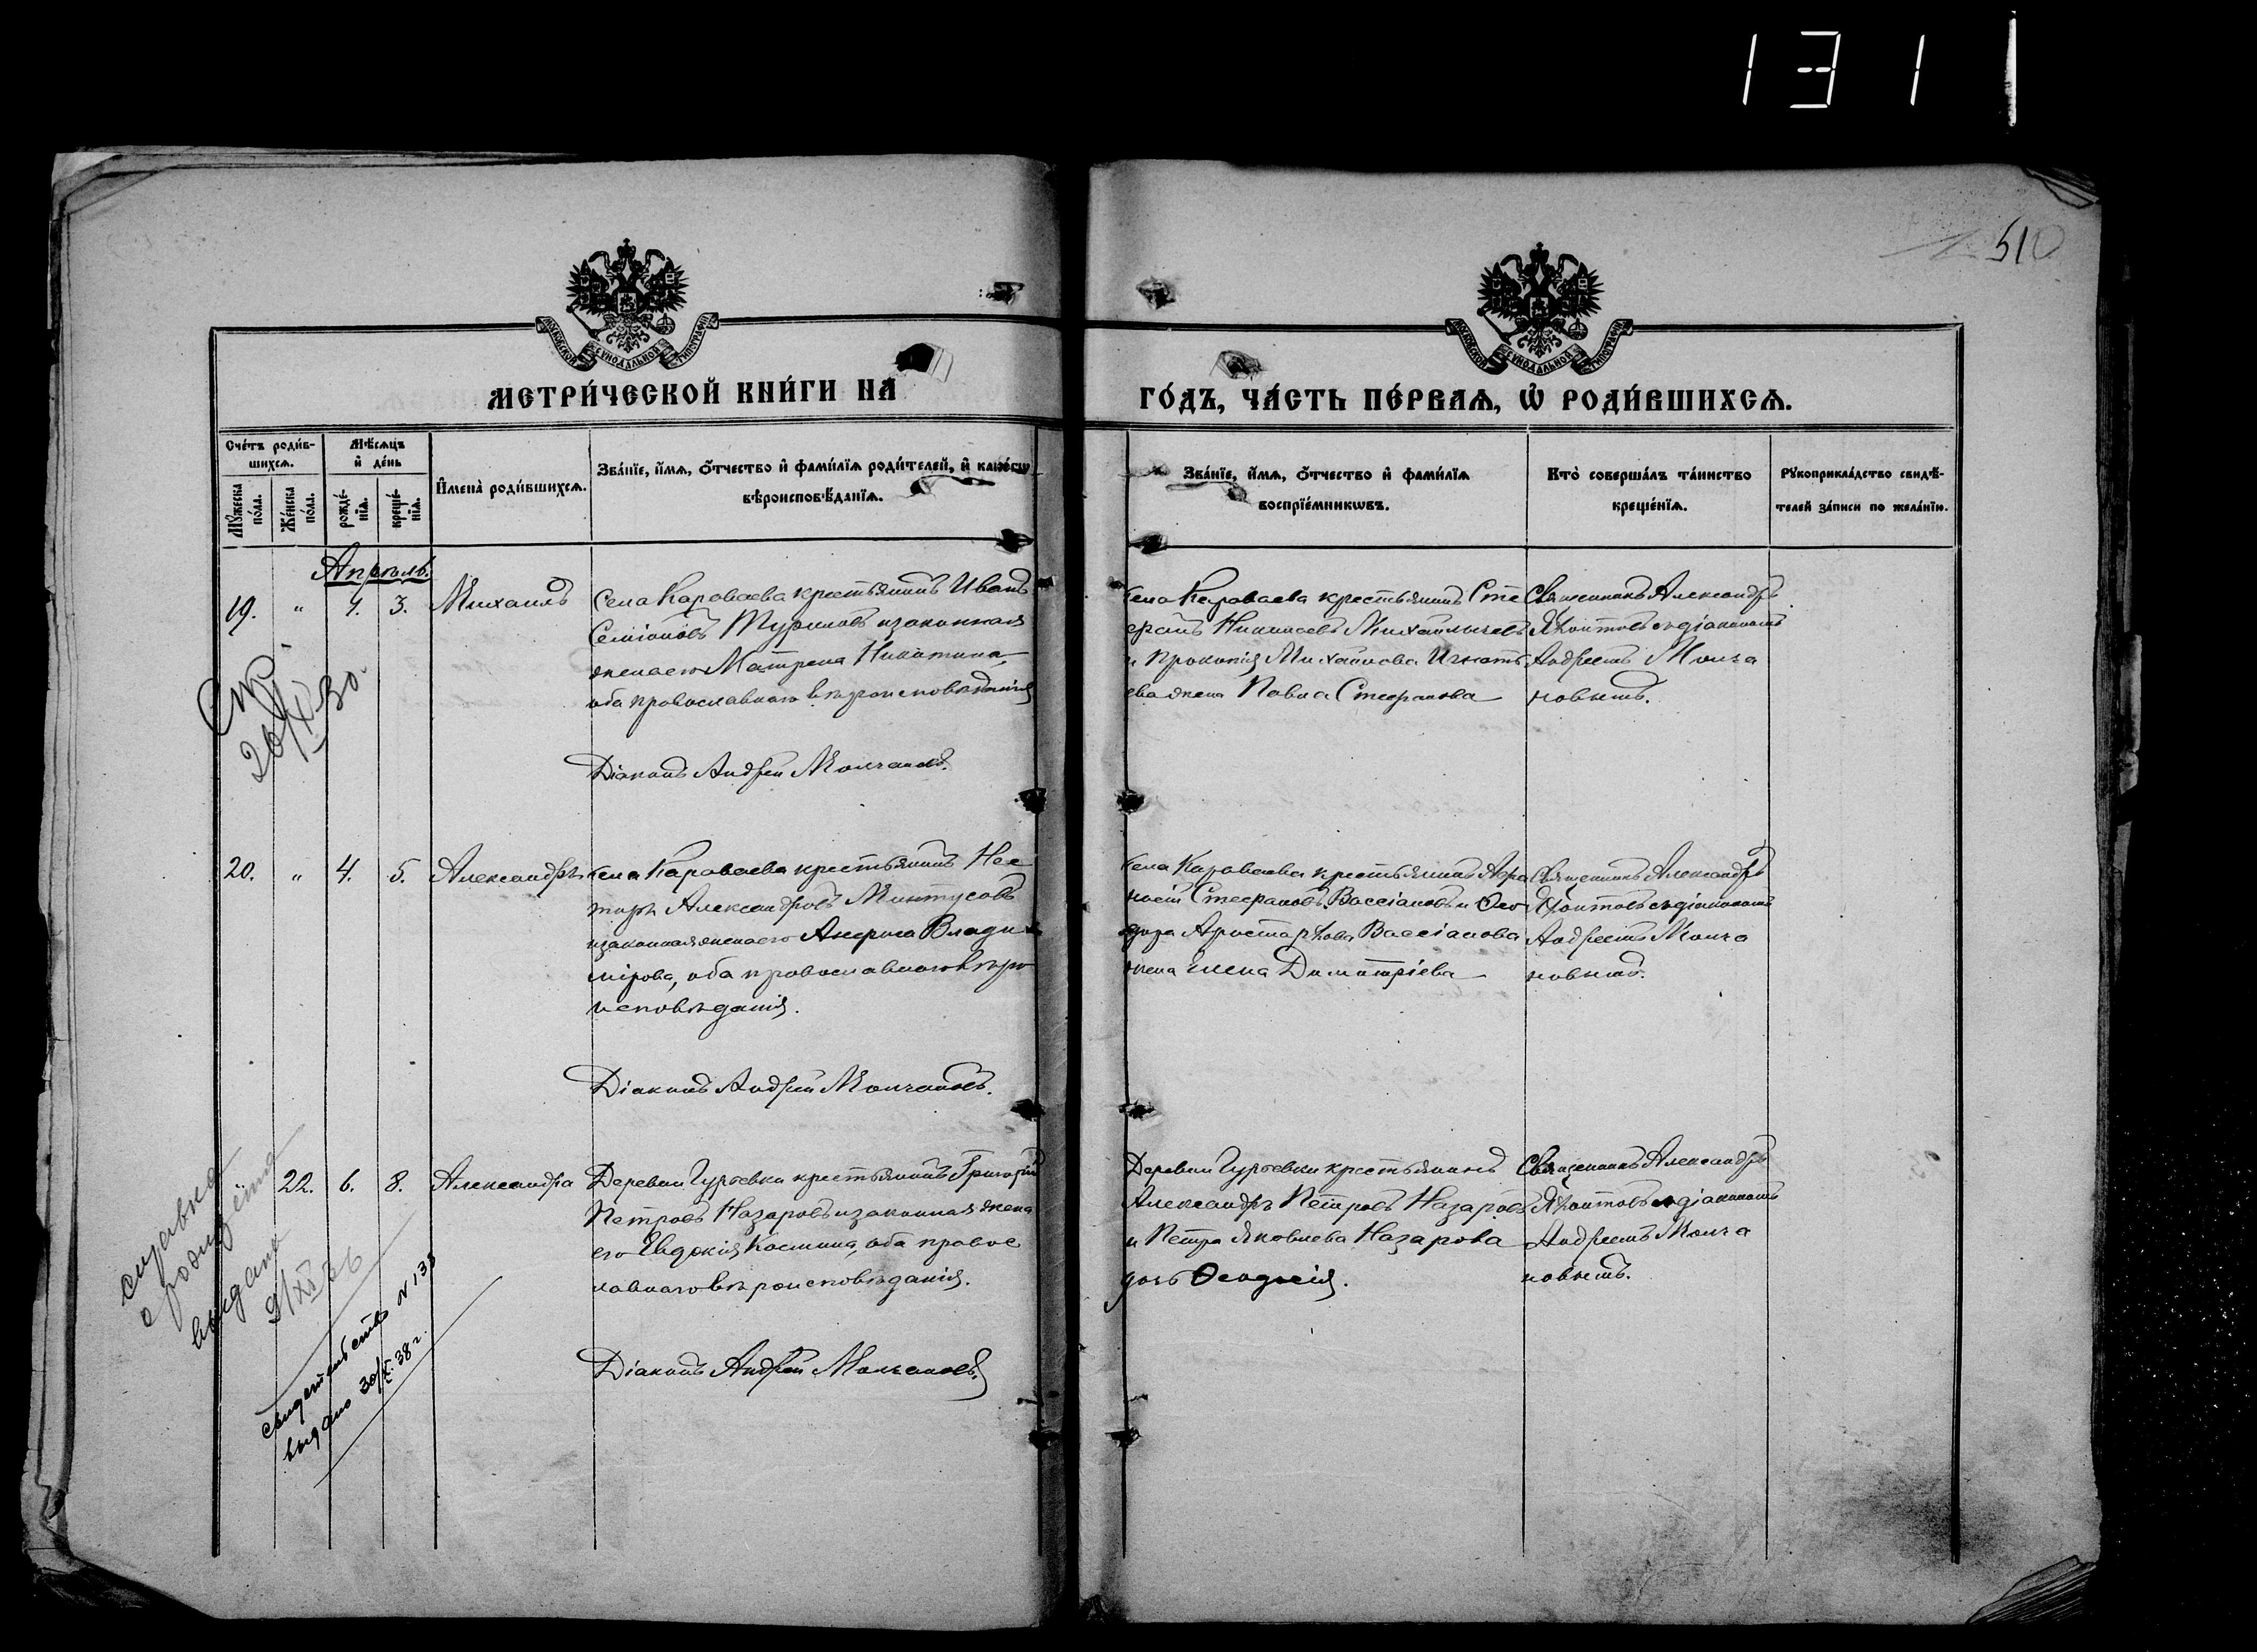 1311
510
МОСКОВСКОЙ СѴНОДАЛЬНОЙ ТИПОГРАФІИ
МОСКОВСКОЙ СѴНОДАЛЬНОЙ ТИПОГРАФІИ
МЕТРИ́ЧЕСКОЙ КНИ́ГИ НА
ГО́ДЪ, ЧА́СТЬ ПЕ́РВАѦ, Ѡ҆ РОДИ́ВШИХСѦ.
Сче́тъ роди́в-
шихсѧ.
Мѣ́сѧцъ
и҆ де́нь
Мꙋ́жеска
по́ла.
Же́нска
по́ла.
рожде́-
нїѧ.
креще́-
нїѧ.
И҆мена̀ роди́вшихсѧ.
Зва́нїе, и҆́мѧ, ѻ҆́тчество и҆ фами́лїѧ роди́телей, и҆ како́гѡ
вѣроисповѣ́данїѧ.
Зва́нїе, и҆́мѧ, ѻ҆́тчество и҆ фами́лїѧ
воспрїе́мникѡвъ.
Кто̀ соверша́лъ та́инство
креще́нїѧ.
Рꙋкоприкла́дство свидѣ́-
телей за́писи по жела́нїю.
Апрѣль.
19. " 1. 3. Михаилъ
Села Караваева крестьянинъ Иванъ
Семіоновъ Туриловъ и законная
жена его Матрена Никитина,
оба православнаго вѣроисповѣданія
Діаконъ Андрей Молчановъ.
села Караваева крестьянинъ Сте
фанъ
и Прокопія Михайлова Игнать
ева жена Павла Стефанова
Священникъ Александръ
съ діакономъ
Андреемъ Молча
новымъ.
26/XI 30
20. " 4. 5. Александръ
села Караваева крестьянинъ Нес
торъ Александровъ Минтусовъ
и законная жена его Анфиса Влади
мірова, оба православнаго вѣро
исповѣданія.
Діаконъ Андрей Молчановъ.
села Караваева крестьянинъ Афа
насій Стефановъ Вассіановъ и Ѳео
дора Аристархова Вассіанова
жена Елена Димитріева
Священникъ Александръ
съ діакономъ
Андреемъ Молча
новымъ.
22. 6. 8. Александра
Деревни Гурьевки крестьянинъ Григорій
Петровъ Назаровъ и законная жена
его Евдокія Косьмина, оба правос
лавнаго вѣроисповѣданія.
Діаконъ Андрей Молчановъ.
Деревни Гурьевки крестьянинъ
Александръ Петровъ Назаровъ
и Петра Яковлева Назарова
дочь Ѳеодосія.
Священникъ Александръ
съ діакономъ
Андреемъ Молча
новымъ.
справка
о рождении
выдана
9/XI 36
свидетельство № 138
выдано 30/X 38 г.